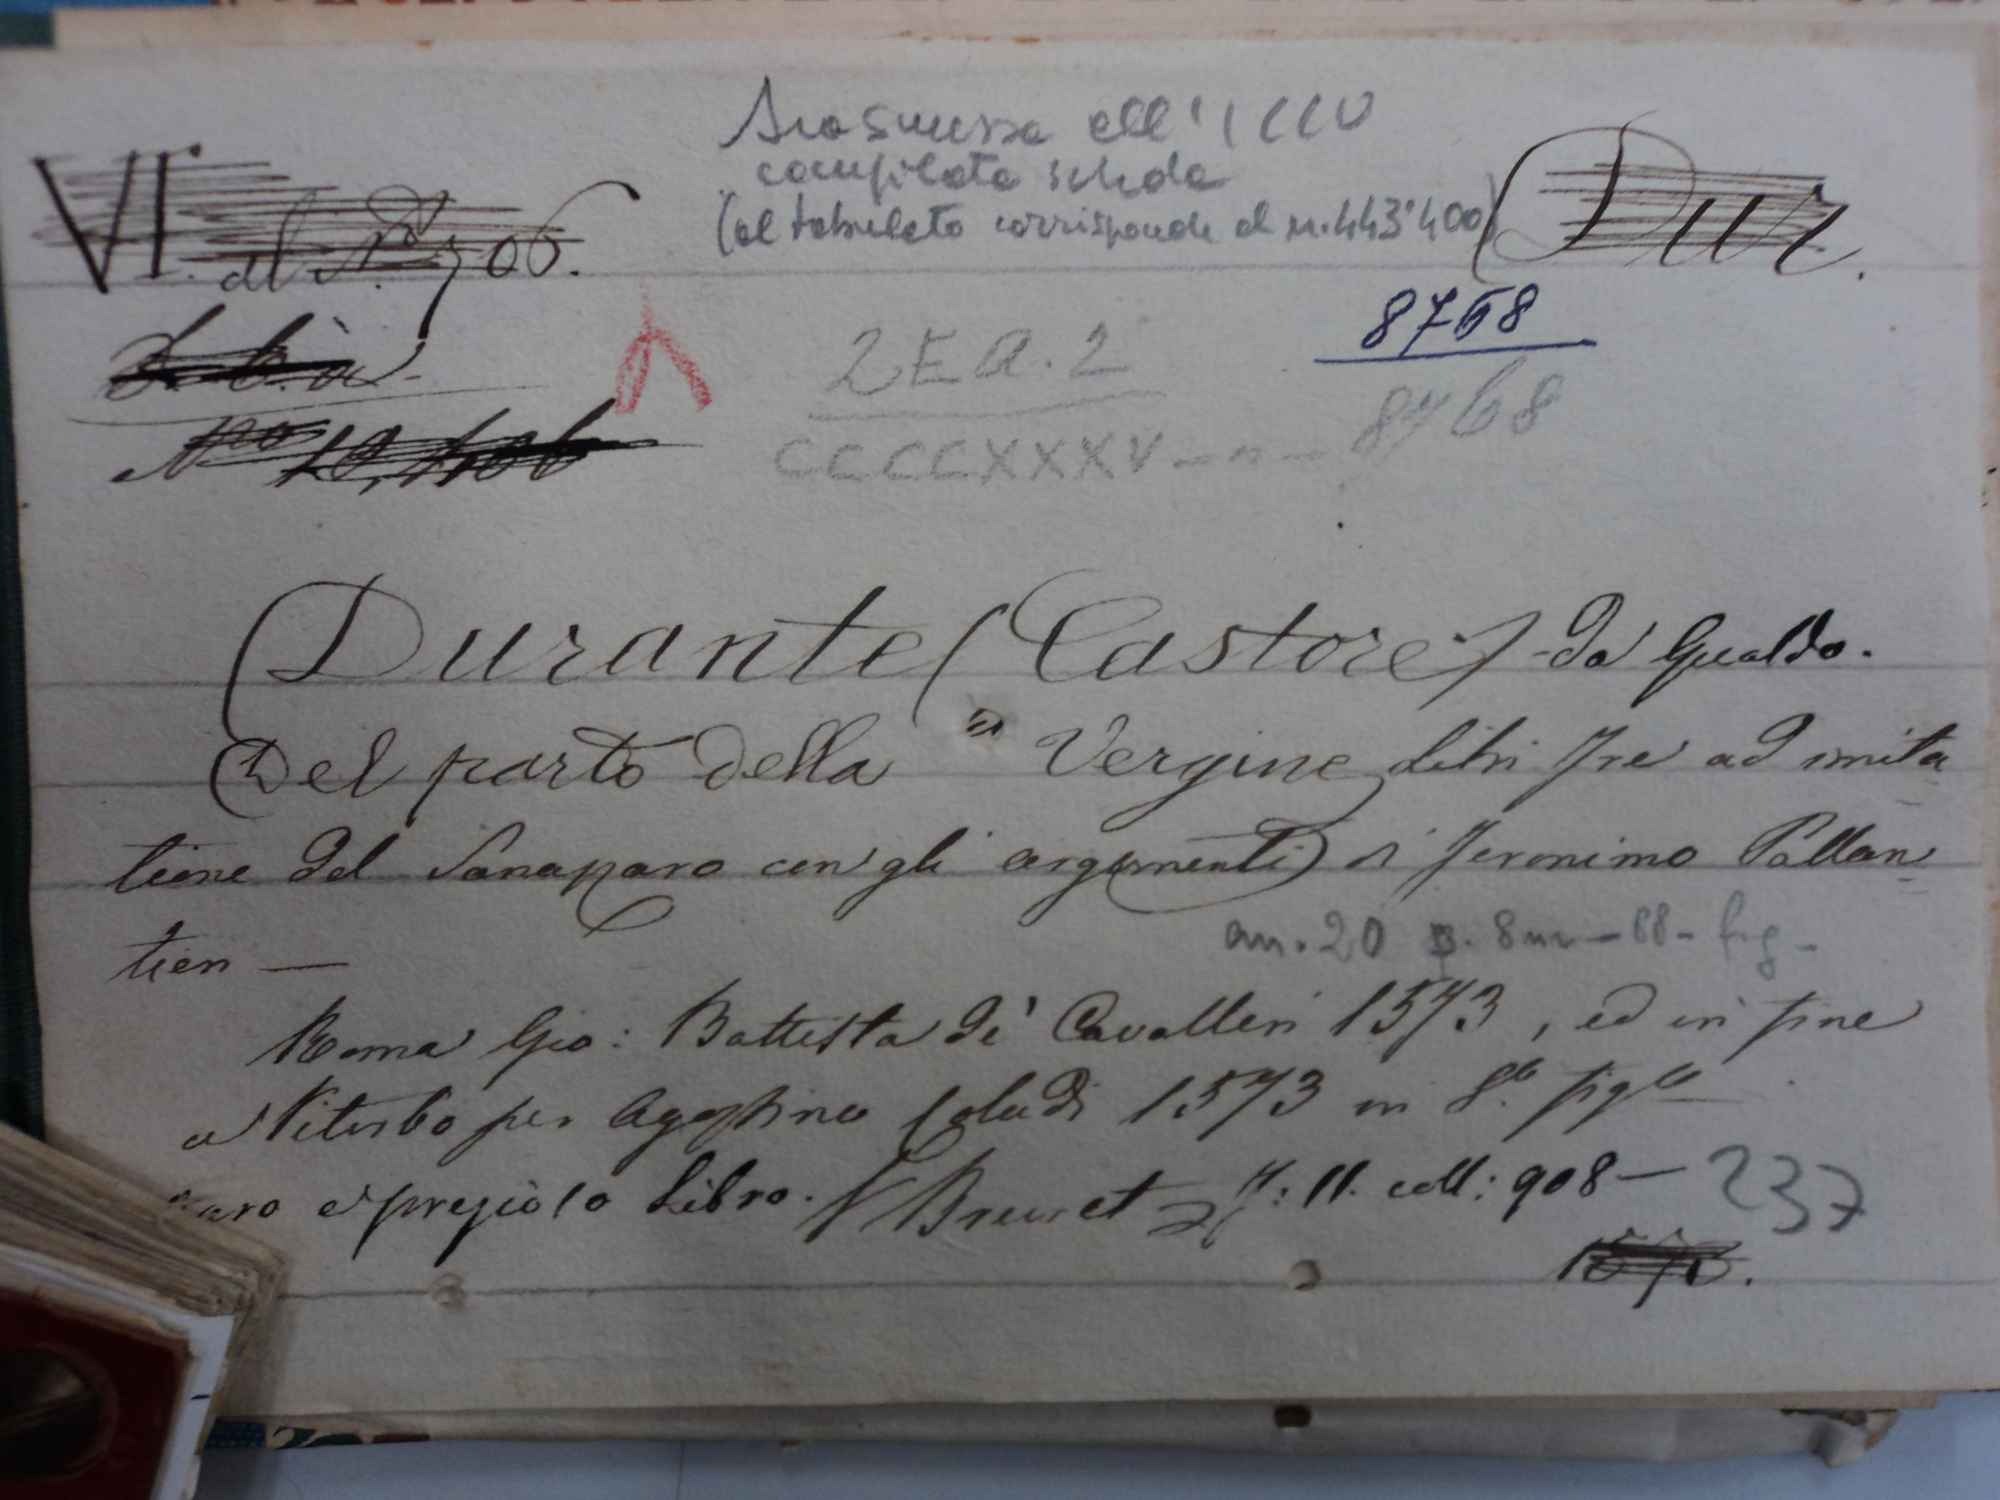 Trasmessa all'ICCU
compilata scheda
(al tabulato corrisponde al n. 443'400)
VI. al N.º 706.
Dur.
8768
2 E A. 2
CCCCXXXV - n - 8768
Durante (Castore) da Gualdo.
Del parto della Vergine, libri Tre ad imita
tione del Sanazaro con gli argomenti di Jeronimo Pallan
tieri —
an. 20 p. 8nn - 88 - fig -
Roma Gio: Battista de' Cavalleri 1573, ed in fine
a Viterbo per Agostino Coladi 1573 in 8.º figto
raro e prezioso Libro. V Brunet T: II. coll: 908 — 237